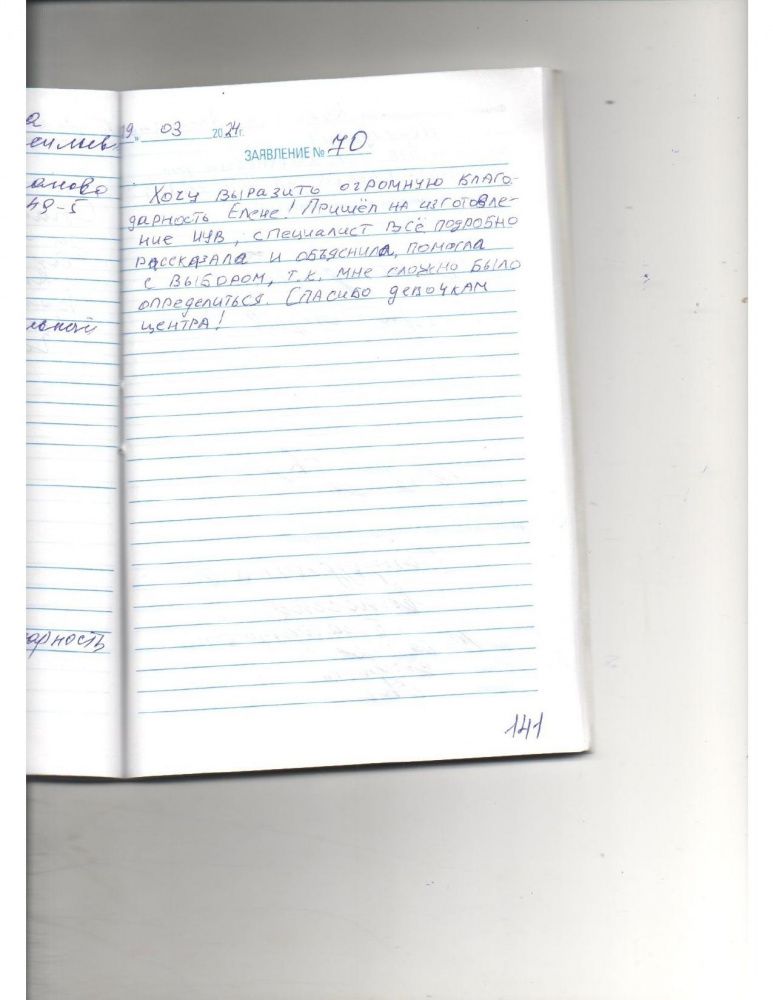 а
19 " 03 2024г.
ЗАЯВЛЕНИЕ № 70
Хочу выразить огромную благо-
дарность Елене! Пришёл на изготовле-
49-5
ние ИУВ, специалист всё подробно
рассказала и объяснила, помогла
с выбором, т.к. мне сложно было
определиться. Спасибо девочкам
центра!
арность
141